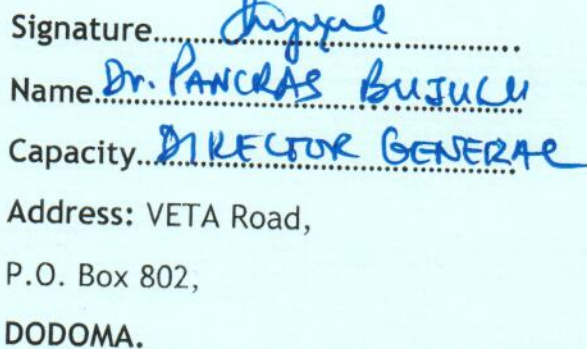 Signature....................
Name Dr. PANCRAS BUJULU
Capacity DIRECTOR GENERAL
Address: VETA Road,
P.O. Box 802,
DODOMA.